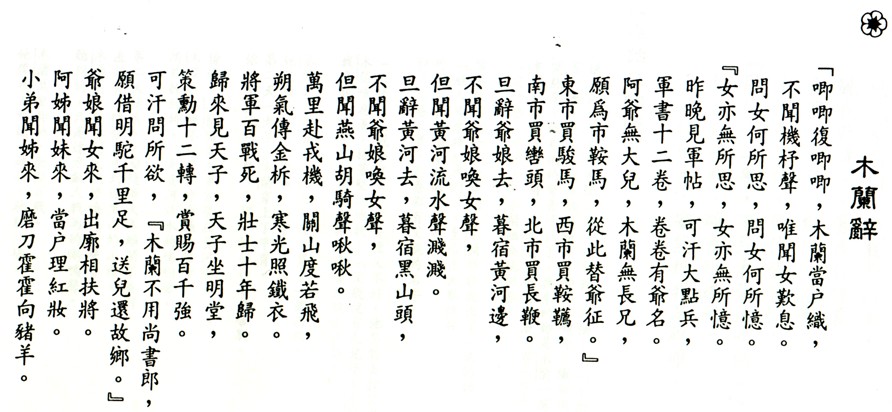 木蘭辭
「唧唧復唧唧，木蘭當户織，
不聞機杼聲，唯聞女歎息。
問女何所思，問女何所憶。
『女亦無所思，女亦無所憶。
昨晚見軍帖，可汗大點兵，
軍書十二卷，卷卷有爺名。
阿爺無大兒，木蘭無長兄，
願爲市鞍馬，從此替爺征。』
東市買駿馬，西市買鞍韉，
南市買轡頭，北市買長鞭。
旦辭爺娘去，暮宿黃河邊，
不聞爺娘喚女聲，
但聞黃河流水聲濺濺。
旦辭黃河去，暮宿黑山頭，
不聞爺娘喚女聲，
但聞燕山胡騎聲啾啾。
萬里赴戎機，關山度若飛，
朔氣傳金柝，寒光照鐵衣。
將軍百戰死，壯士十年歸。
歸來見天子，天子坐明堂，
策勳十二轉，賞賜百千強。
可汗問所欲，『木蘭不用尚書郎，
願借明駝千里足，送兒還故鄉。』
爺娘聞女來，出廓相扶將。
阿姊聞妹來，當户理紅妝。
小弟聞姊來，磨刀霍霍向豬羊。